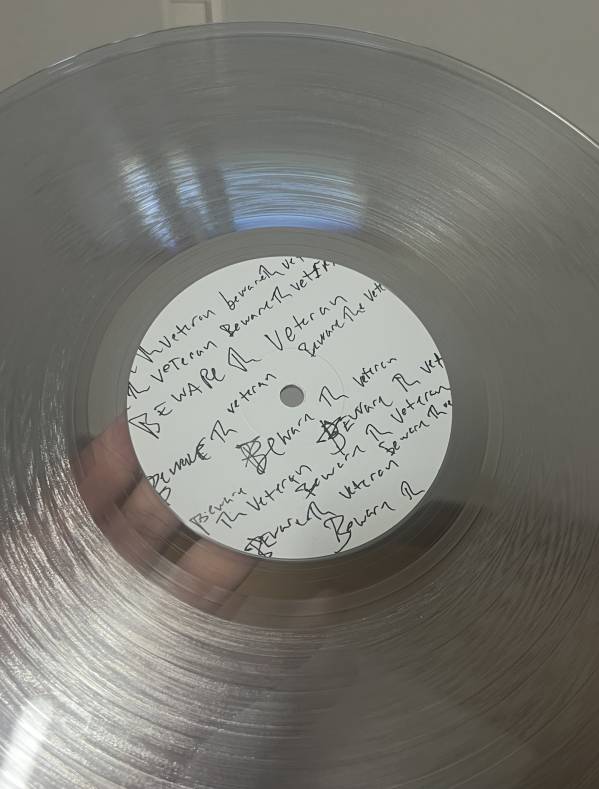 Th Veteran beware Th vet
Th VETERAN Beware Th veteran
BEWARE Th Veteran
Beware The Vete
BEWARE Th veteran
Beware Th veteran
BEWARE Th vet
Beware
Th Veteran Beware Th Veteran
BEware Th veteran Beware The
Beware Th